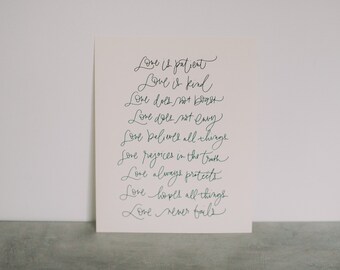 Love is patient
Love is kind
Love does not boast
Love does not envy
Love believes all things
Love rejoices in the truth
Love always protects
Love hopes all things
Love never fails